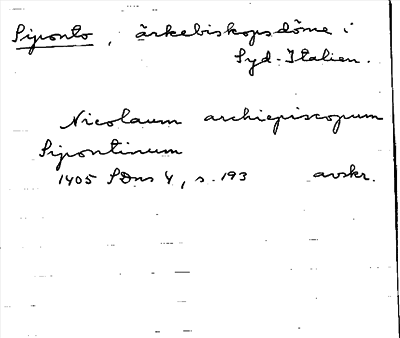 Siponto, ärkebiskopsdöme i
Syd-Italien.
Nicolaum archiepiscopum
Sipontinum
1405 SDns 4, s. 193 avskr.